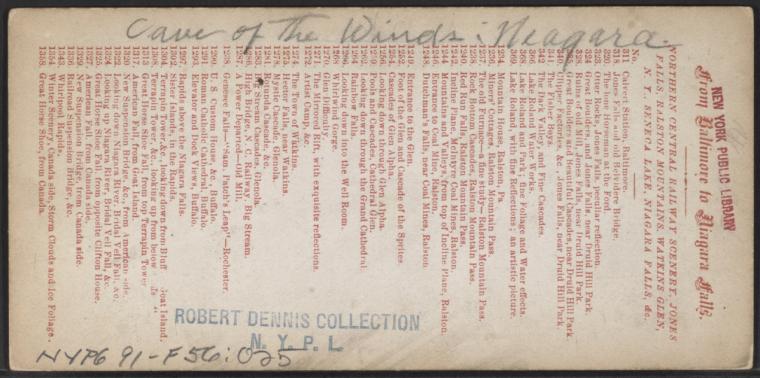 Cave of the Winds: Niagara.
NEW YORK PUBLIC LIBRARY
From Baltimore to Niagara Falls.
NORTHERN CENTRAL RAILWAY SCENERY, JONES
FALLS, RALSTON MOUNTAINS, WATKINS GLEN,
N. Y., SENECA LAKE, NIAGARA FALLS, &c.
No.
311 Calvert Station, Baltimore.
312 Jones Falls and Belvidere Bridge.
320 The one Horseman at the Ford.
323 Otter Rocks, Jones Falls, peculiar reflection.
326 Great Boulders, and Jones Falls, near Druid Hill Park.
328 Ruins of Old Mill, Jones Falls, near Druid Hill Park.
Great Boulders and Beautiful Cascades, near Druid Hill Park
340 Cliffs, Cascades, &c., Jones Falls, near Druid Hill Park.
The Table Rocks.
342 The Dark Valley, and Fine Cascades.
367 Lake Roland and rocks.
368 Lake Roland and Park; Fine Foliage and Water effects.
369 Lake Roland, with fine Reflections; an artistic picture.
1234 Mountain House, Ralston, Pa
Ralston Mountain Pass.
1237 The old Furnace—a fine study—Ralston Mountain Pass.
1238 Rock Room Cascades, Ralston Mountain Pass.
Red Run Falls, Ralston Mountain Pass.
1242 Incline Plane, McIntyre Coal Mines, Ralston.
1244 Mountains and Valleys, from top of Incline Plane, Ralston.
Entrance to Coal Mines, Ralston.
1248 Dutchman's Falls, near Coal Mines, Ralston.
1249 Entrance to the Glen.
1252 Foot of the Glen and Cascade of the Sprites.
Cascades, Glen Alpha.
1256 Looking down the Glen, Glen Alpha.
1259 Pools and Cascades, Cathedral Glen.
1260 Looking down through the Grand Cathedral.
1264 Rainbow Falls.
Looking down into the West Room.
1268 Whirlwind Gorge.
1270 Glen Facility.
1271 The Mirrored Rift, with exquisite reflections.
Artist's Camp, &c.
1274 The Town of Watkins.
1275 Hector Falls, near Watkins.
1278 Mystic Cascade, Glenola.
1281 Bermuda Cascade, &c.
1283 Big Stream Cascades, Glenola.
1286 High Bridge, N. C. Railway, Big Stream.
1287 Lower Falls.—Old Mill.
1288 Genesee Falls—"Sam. Patch's Leap"—Rochester
1290 U. S. Custom House, &c., Buffalo.
1291 Roman Catholic Cathedral, Buffalo.
1293 Elevator and Dock Views, Buffalo.
Rapids in Niagara River.
1302 Sister Islands, in the Rapids.
1304 Terrapin Tower, &c., looking down from Bluff Goat Island.
Terrapin Tower, &c., looking up from below
1313 Horse Shoe Fall, from top of Terrapin Tower
1317 American Fall, from Goat Island.
1322 Looking down Niagara River, Bridal Veil Fall, &c.
1324 Looking up Niagara River, Bridal Veil Fall, &c.
1325 Great Horse Shoe Fall, from opposite Clifton House.
1327 American Fall, from Canada side.
1329 New Suspension Bridge, from Canada side.
1336 Railroad Suspension Bridge, &c.
1343 Whirlpool Rapids.
1354 Winter Scenery, Canada side, Storm Clouds and Ice Foliage.
1358 Great Horse Shoe, from Canada.
ROBERT DENNIS COLLECTION
N. Y. P. L.
NYPG 91-F56:025